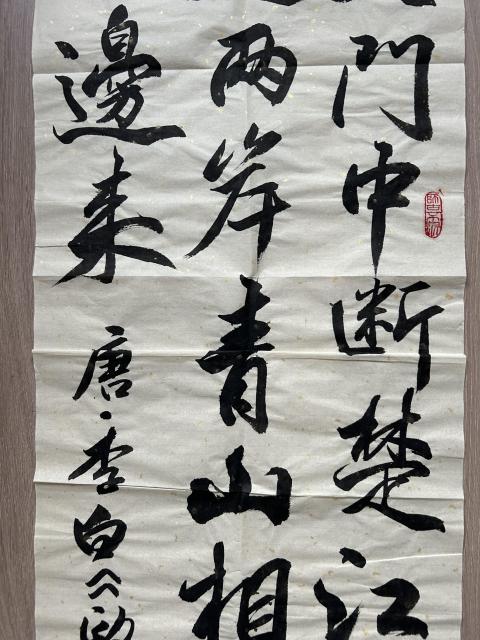 門中斷楚江
两岸青山相
邊来 唐李白